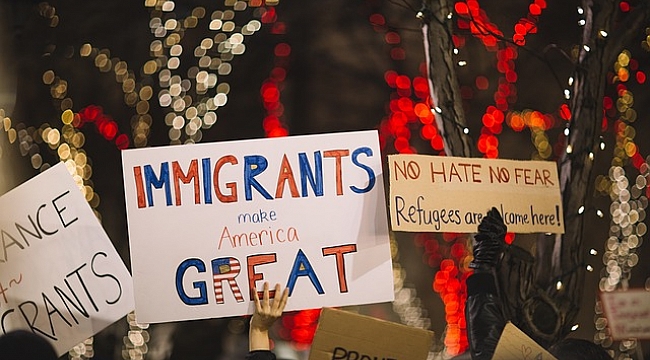 RANCE
GRANTS
IMMIGRANTS
make
America
GREAT
NO HATE NO FEAR
Refugees are welcome here!